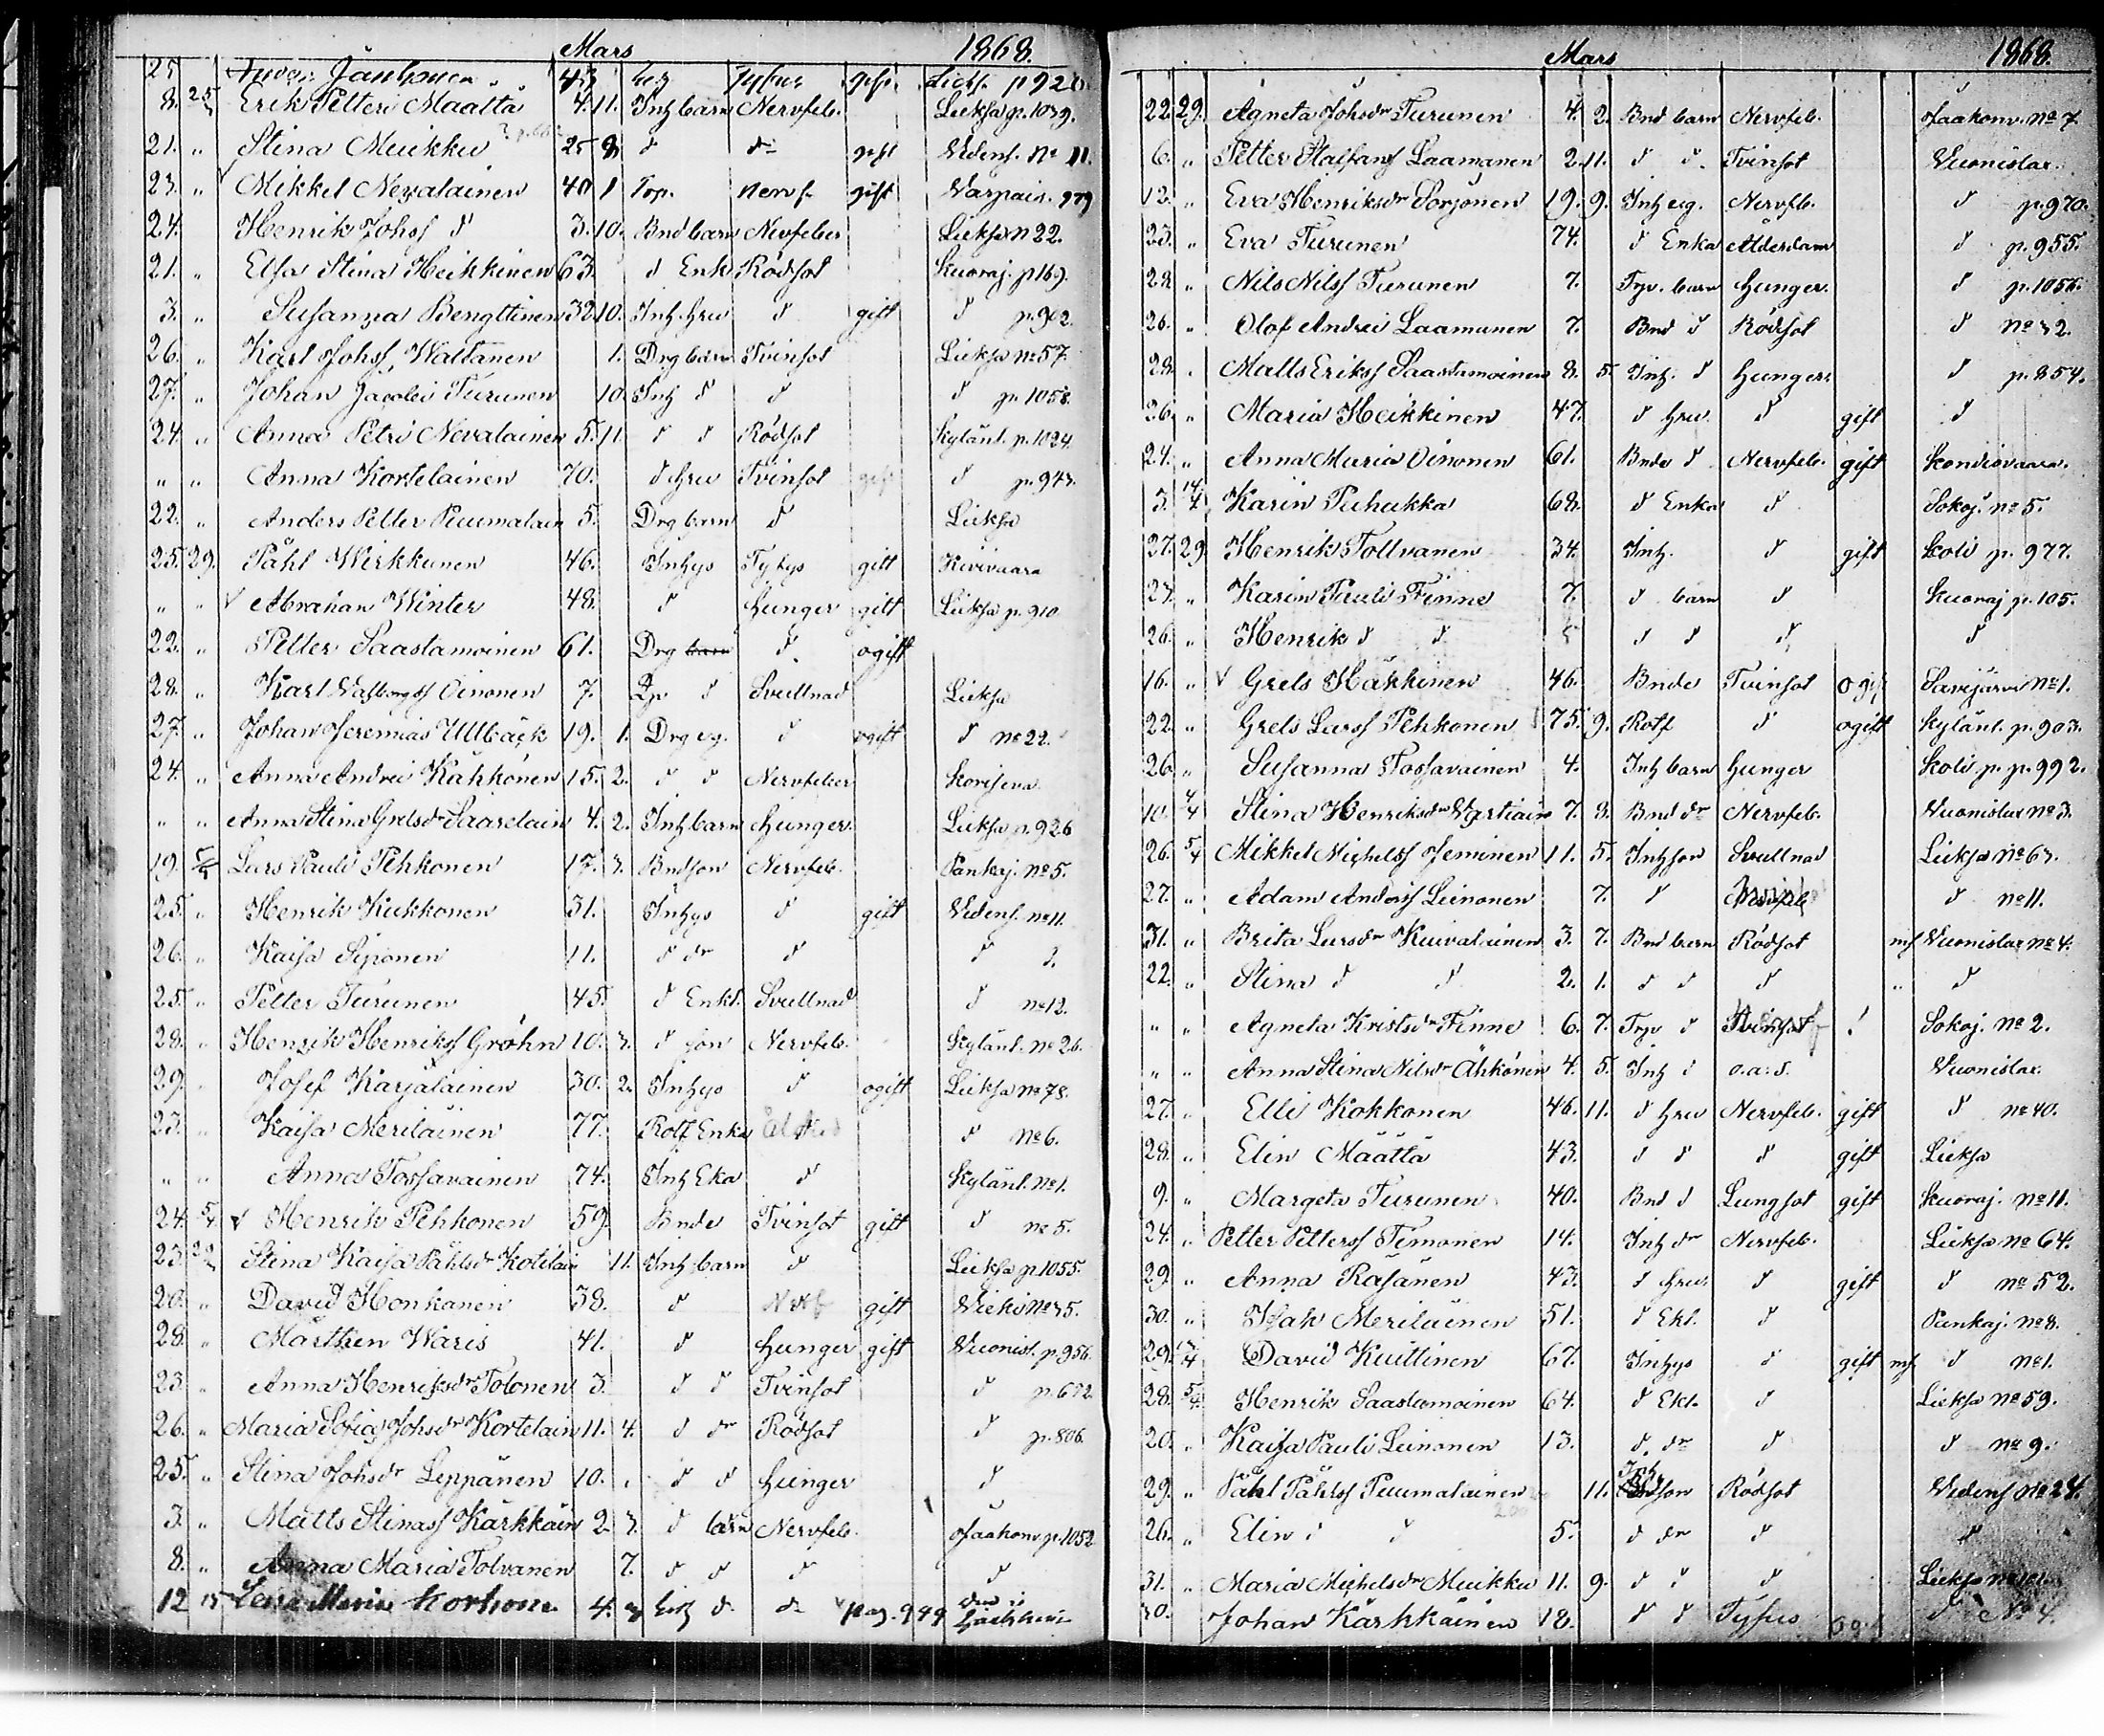 Mars 1868.
25 Anders Jauhonen 43 Inh Tyfus gift Lieksa p 920
8. 25/3 Erik Petteri Määttä 4. 11. Inh barn Nervfeb. Lieksa p. 1039.
21. " Stina Muikku 25 8 d do gift Videns. No 11.
23. " Mikkel Nevalainen 40 1 Torp. nervf. gift Varpais. 979
24. Henrik Johss d 3. 10. Bnd barn Nervfeber Lieksa n 22.
21. " Elsa Stina Heikkinen 63. d Enk Rödsot Kuoraj. p 169.
3. " Susanna Bengttinen 32 10. Inh. hru d gift d p. 902.
26. " Karl Johss Wattanen 1. Drg barn Tvinsot Lieksa no 57.
27. " Johan Jacobi Turunen 10. Inh d d d p. 1058.
24. " Anna Petri Nevalainen 5. 11. d d Rödsot Kylänl. p. 1024.
" " Anna Kortelainen 70. d hru Tvinsot gift d p. 943.
22. " Anders Petter Puumalain 5. Drg barn d Lieksa
25. 29. Påhl Wirkkunen 46. Inhys Tyfus gift Kivivaara
" " v Abraham Winter 48. d hunger gift Lieksa p. 910
22. " Petter Saastamoinen 61. Drg barn d ogift
28. " Karl Walborgss Oinonen 7. Tjv d Svullnad Lieksa
27. " Johan Jeremias Ullbäck 19. 1. Drg yg. d ogift d no 22.
24. " Anna Andrei Kähkönen 15. 2. d d Nervfeber Koriseva
" " Anna Stina Gretsdr Saarelain 4. 2. Inh barn hunger. Lieksa p. 926
19. 5/4 Lars Pauli Pehkonen 17. 3. Bndson Nervfeb. Pankaj. no 5.
25. " Henrik Kukkonen 31. Inhys d gift Videns. no 11.
26. " Kaisa Siponen 11. d dr d d 2.
25. " Petter Turunen 45. d Enkl. Svullnad d no 12.
28. " Henrik Henrikss Gröhn 10. 3. d son Nervfeb. Kylänl. no 26.
29. " Josef Karjalainen 30. 2. Inhys d ogift Lieksa no 78.
23. " Kaisa Meriläinen 77. Rotf Enka d no 6.
" " Anna Tossavainen 74. Inh Eka d Kylänl. no 1.
24. 5/4 v Henrik Pehkonen 59. Bnde Tvinsot gift d no 5.
23. 29 Stina Kaisa Påhlsdr Kotilai 11. Inh barn d Lieksa p 1055.
20. " David Honkanen 38. d Nervf gift Vieki no 35.
28. " Märthen Waris 41. d hunger gift Vuonisl. p. 956.
23. " Anna Henriksdr Tolonen 3. d d Tvinsot d p. 672.
26. " Maria Sofia Johsdr Kortelain 11. 4. d dr Rödsot d p. 806.
25. " Stina Johsdr Leppänen 10. d d hunger d
3. " Matts Stinass Kärkkäin 2. 3. d barn Nervfeb. Jaakonv. p. 1052
8. " Anna Maria Tolvanen 7. d d d d
12 15 Lena Maria Korhone 4. 3 Inh d. do pag. 999
Mars 1868.
22. 29. Agneta Johsdr Turunen 4. 2. Bnd barn Nervfeb. Jaakonv. no 7.
6. " Petter Staffans Laamanen 2. 11. d d. Tvinsot Vuonislax.
12. " Eva Henriksdr Sorjonen 19. 9. Inh eig. Nervfb. d p. 970.
23. " Eva Turunen 74. d Enka Ålderdom d p. 955.
28 " Nils Nilss Turunen 7. Trp. barn hunger. d p. 1056.
26. " Olof Andrei Laamanen 7. Bnd d Rödsot d no 32.
28. " Matts Erikss Saastamoinen 8. 5. Inh. d hunger. d p. 854.
26. " Maria Heikkinen 47. d hru. d gift d
24. " Anna Maria Oinonen 61. Bnde d Nervfeb. gift Kondiovaara.
3. 14/4 Karin Puhakka 68. d Enka d Sokoj. no 5.
27. 29. Henrik Tolvanen 34. Inh. d gift Koli p. 977.
27. " Karin Pauli Finne 7. d barn d Kuoraj. p. 105.
26. " Henrik d d 5 d d d d
16. " v Grels Häkkinen 46. Bnde Tvinsot ogift Savijärvi no 1.
22. " Grels Larss Pehkonen 75. 9. Rotf d ogift Kylänl. p. 903.
26. " Susanna Tossavainen 4. Inh barn hunger Koli p. p. 992.
10. 4/4 Stina Henriksdr Wartiain 7. 3. Bnd dr Nervfeb. Vuonislax no 3.
26. 5/4 Mikkel Michelss Jeminen 11. 5. Inhson Svullnad Lieksa no 63.
27. " Adam Anderss Leinonen 7. d d no 11.
31. " Brita Larsdr Kuivalainen 3. 7. Bnd barn Rödsot mf Vuonislax no 4.
22. " Stina d d 2. 1. d d d " d
" " Agneta Kristsdr Finne 6. 7. Trp d Tvinsot ! Sokoj. no 2.
" " Anna Stina Nilsdr Ähkönen 4. 5. Inh d o.a.s. Vuonislax.
27. " Elli Kokkonen 46. 11. d hru Nervfeb. gift d no 40.
28. " Elin Määttä 43. d d d gift Lieksa
9. " Margeta Turunen 40. Bnd d Lungsot gift Kuoraj. no 11.
24. " Petter Petterss Timonen 14. Inh dr Nervfeb. Lieksa no 64.
29. " Anna Räsänen 43. d hru. d gift d no 52.
30. " Isak Meriläinen 51. d Ekl. d Pankaj. no 8.
29. 7/4 David Kuittinen 67. Inhys d gift mf d no 1.
28. 5/4 Henrik Saastamoinen 64. d Ekl. d Lieksa no 59.
20. " Kaisa Pauli Leinonen 13. d. dr d d no 9.
29. " Påhl Påhlss Puumalainen 11. Inh son Rödsot Videns no 24.
26. " Elin d d 5. d dr d d
31. " Maria Michelsdr Muikku 11. 9. d d d Lieksa
30. Johan Kärkkäinen 18. d d Tyfus ogi d No 4.